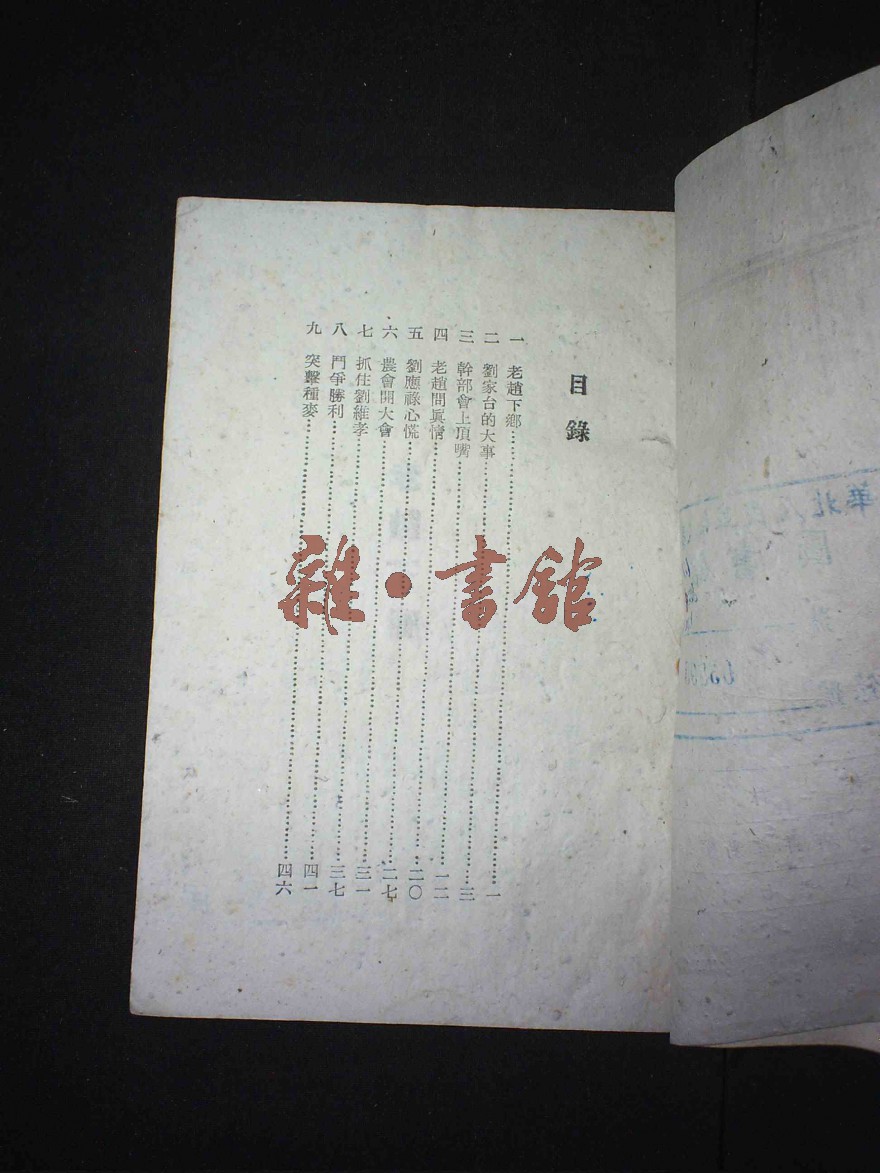 目錄
一 老趙下鄉……一
二 劉家台的大事……三
三 幹部會上頂嘴……一二
四 老趙問眞情……二〇
五 劉應祿心慌……二七
六 農會開大會……三一
七 抓住劉維孝……三七
八 鬥爭勝利……四一
九 突擊種麥……四六
雜·書館
華北